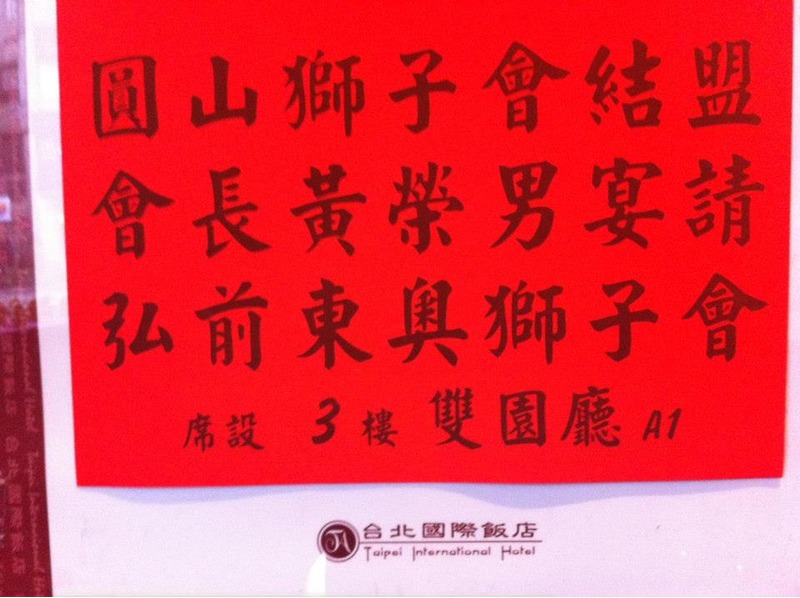 圓山獅子會結盟
會長黃榮男宴請
弘前東奧獅子會
席設 3樓 雙園廳 A1
台北國際飯店
Taipei International Hotel